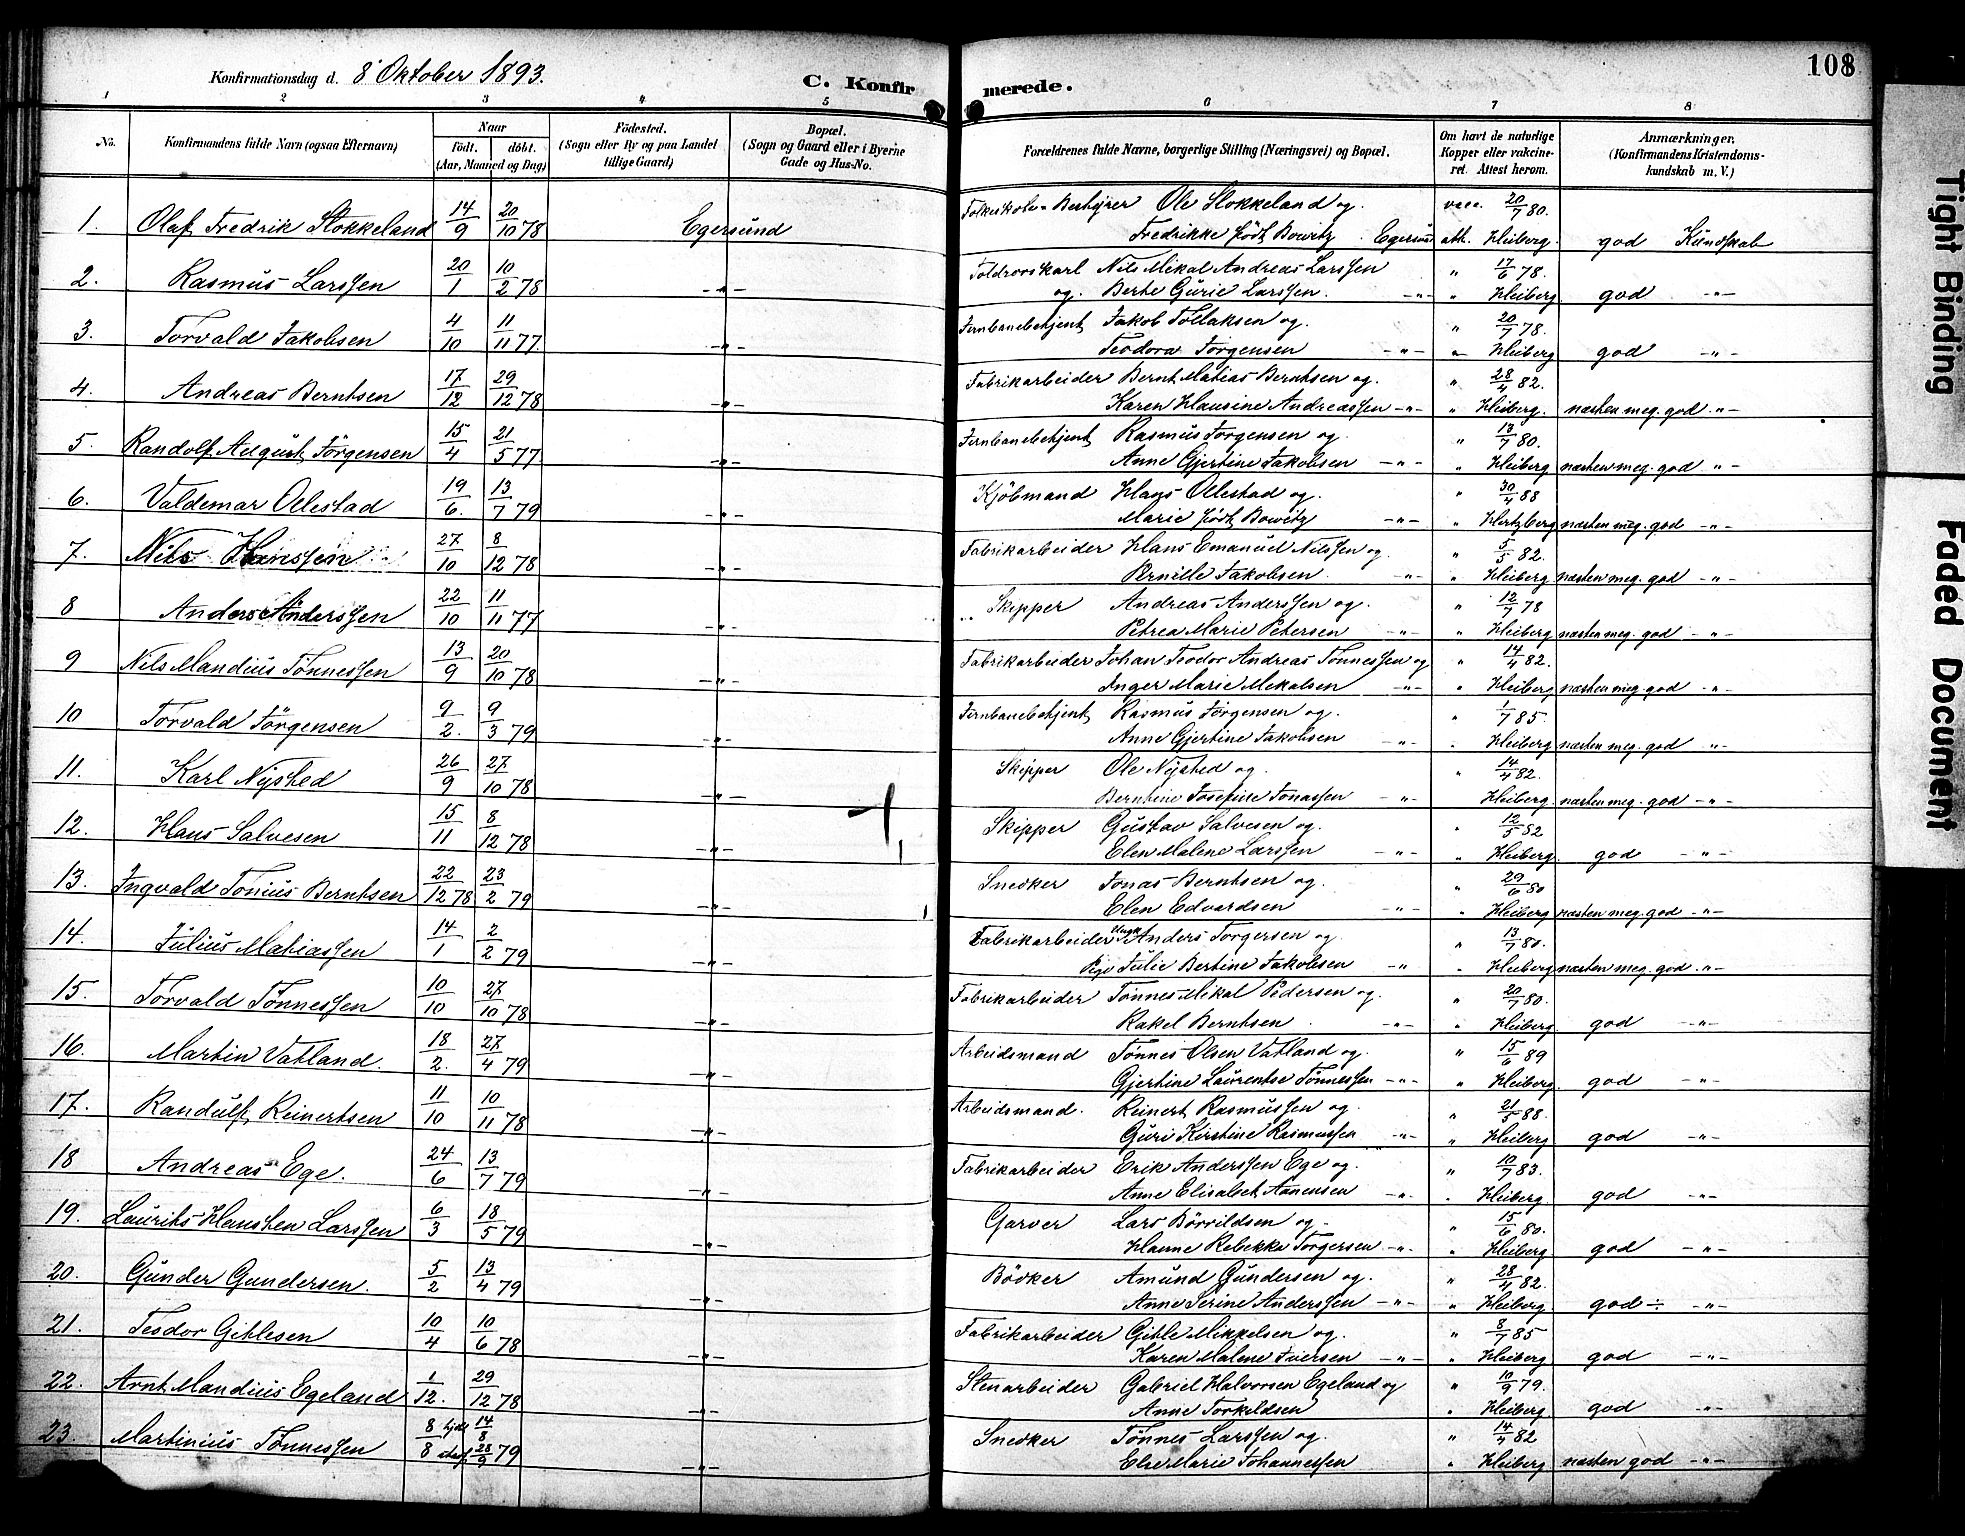 Konfirmationsdag d. 8 Oktober 1893.
C. Konfirmerede.
108
1 2 3 4 5 6 7 8
No.
Konfirmandens fulde Navn (ogsaa Efternavn)
Naar
födt. döbt.
(Aar, Maaned og Dag)
Födested.
(Sogn eller By og paa Landet
tillige Gaard)
Bopæl.
(Sogn og Gaard eller i Byerne
Gade og Hus-No.
Forældrenes fulde Navne, borgerlige Stilling (Næringsvei) og Bopæl.
Om havt de naturlige
Kopper eller vakcine-
ret. Attest herom.
Anmærkninger.
(Konfirmandens Kristendoms-
kundskab m. V.)
1. Olaf Fredrik Stokkeland 14/9 20/10 78 Egersund Folkeskole-Bestyrer Ole Stokkeland og vacc. 20/7 80.
Fredrikke født Bowitz Egersund att. Heiberg. god Kundskab
2. Rasmus Larssen 20/1 10/2 78 -"- Toldrorskarl Nils Mikal Andreas Larssen " 17/6 78.
og Berte Gurie Larssen. -"- " Heiberg god -"-
3. Torvald Jakobsen 4/10 11/11 77. -"- Jernbanebetjent Jakob Tollaksen og " 20/7 78.
Teodora Torgensen -"- " Heiberg god -"-
4. Andreas Berntsen 17/12 29/12 78 -"- Fabrikarbeider Bernt Matias Berntsen og. " 28/4 82.
Karen Hansine Andreassen -"- " Heiberg. næsten meg. god -"-
5. Randolf August Jörgensen 15/4 21/5 77 -"- Jernbanebetjent Rasmus Jorgensen og " 13/7 80.
Anne Gjertine Jakobsen -"- " Heiberg næsten meg. god -"-
6. Valdemar Ollestad 19/6. 13/7 79 -"- Kjöbmand Hans Ollestad og. " 30/4 88
Marie født Bowitz -"- " Hertzberg næsten meg. god -"-
7. Nils Hanssen 27/10 8/12 78 -"- Fabrikarbeider Hans Emanuel Nilssen og " 5/5 82.
Pernille Jakobsen. -"- " Heiberg næsten meg. god -"-
8 Anders Anderssen 22/10 11/11 77 -"- Skipper Andreas Anderssen og. " 12/7 78
Petrea Marie Petersen -"- " Heiberg næsten meg. god -"-
9 Nils Mandius Tönnessen 13/9 20/10 78 -"- Fabrikarbeider Johan Teodor Andreas Tonnessen og " 14/4 82.
Inger Marie Mekalsen -"- " Heiberg næsten meg. god -"-
10 Torvald Jörgensen 9/2. 9/3 79 -"- Jernbanebetjent Rasmus Jorgensen og. " 1/7 85.
Anne Gjertine Jakobsen -"- " Heiberg næsten meg. god -"-
11. Karl Nysted 26/9 27/10 78 -"- Skipper Ole Nysted og. " 14/4 82.
Berntine Josefine Jonassen -"- Heiberg. næsten meg. god -"-
12. Hans Salvesen 15/11 8/12 78 -"- Skipper Gustav Salvesen og. " 12/5 82
Elen Malene Larssen -"- " Heiberg. god -"-
13. Ingvald Tonius Berntsen 22/12 78 23/2 79 -"- Snedker Jonas Berntsen og. " 29/6 80
Elen Edvardsen -"- " Heiberg næsten meg. god -"-
14. Julius Matiassen 14/1 2/2 79 -"- Fabrikarbeider Ungk. Anders Torgersen og " 13/7 80.
Pige Julie Bertine Jakobsen -"- " Heiberg næsten meg. god -"-
15. Torvald Tönnessen 10/10 27/10 78 -"- Fabrikarbeider Tönnes Mikal Pedersen og. " 20/7 80.
Rakel Berntsen -"- " Heiberg. god -"-
16. Martin Vatland. 18/2. 27/4 79 -"- Arbeidsmand Tönnes Olsen Vatland og " 15/6 89
Gjertine Laurentse Tönnessen -"- " Heiberg. god -"-
17. Randulf Reinertsen 11/10 10/11 78 -"- Arbeidsmand. Reinert Rasmussen og " 21/5 88.
Guri Kirstine Rasmussen -"- " Heiberg god -"-
18 Andreas Ege. 24/6 13/7 79 -"- Fabrikarbeider Erik Anderssen Ege og. " 10/7 83.
Anne Elisabet Aanensen -"- " Heiberg god -"-
19. Laurits Hansten Larssen 6/3 18/5 79 -"- Garver Lars Börrildsen og - " 15/6 80.
Hanne Rebekka Torgersen -"- " Heiberg god -"-
20. Gunder Gundersen. 5/2 13/4 79 -"- Bödker Amund Gundersen og. " 28/4 82.
Anne Serine Anderssen -"- " Heiberg god ÷ -"-
21. Teodor Gitlesen 10/4 10/6 78 -"- Fabrikarbeider Gitle Mikkelsen og. " 8/7 85
Karen Malene Iversen -"- " Heiberg god -"-
22. Arnt Mandius Egeland 1/12. 29/12 78 -"- Stenarbeider Gabriel Halvorsen Egeland og " 10/9 79.
Anne Torkildsen " Heiberg. god -"-
23. Martinius Tönnessen 8/8 14/8 28/9 79 -"- Snedker Tönnes Larssen og. " 14/4 82
Else Marie Johannessen " Heiberg næsten god -"-
Tight Binding
Faded Document